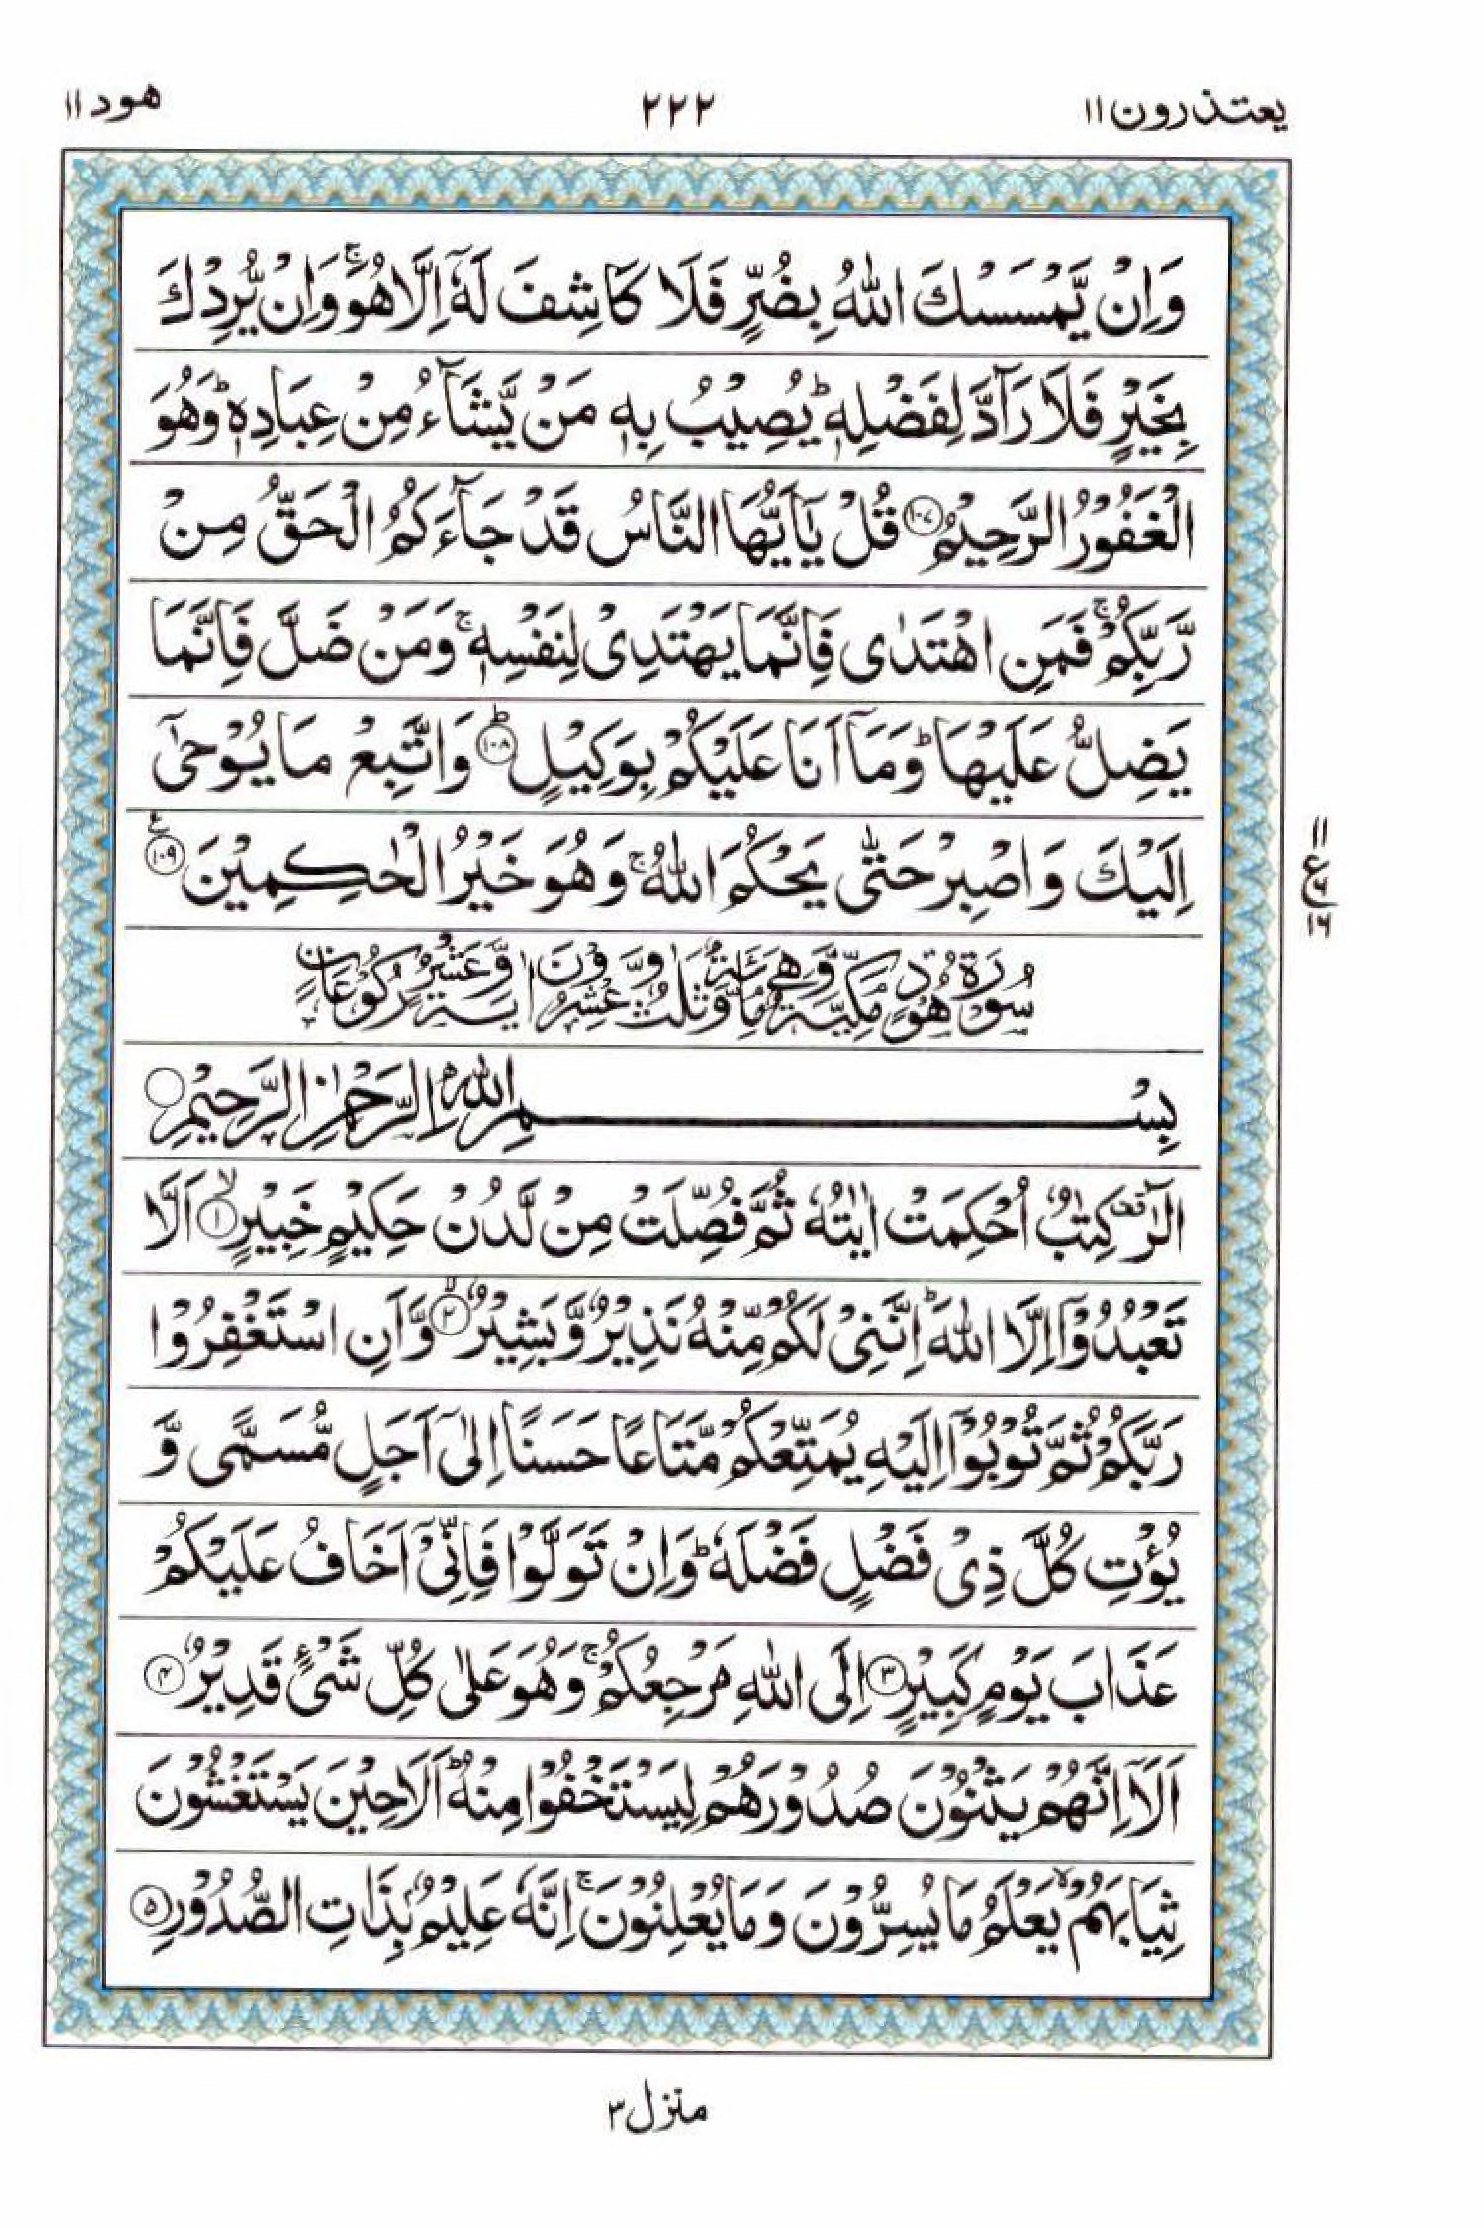 يعتذرون ١١
٢٢٢
هود ١١
وَاِنْ يَّمْسَسْكَ اللّٰهُ بِضُرٍّ فَلَا كَاشِفَ لَهٗۤ اِلَّا هُوَ ۚ وَاِنْ يُّرِدْكَ
بِخَيْرٍ فَلَا رَآدَّ لِفَضْلِهٖ ؕ يُصِيْبُ بِهٖ مَنْ يَّشَآءُ مِنْ عِبَادِهٖ ؕ وَهُوَ
الْغَفُوْرُ الرَّحِيْمُ ﴿١٠٧﴾ قُلْ يٰۤاَيُّهَا النَّاسُ قَدْ جَآءَكُمُ الْحَقُّ مِنْ
رَّبِّكُمْ ۚ فَمَنِ اهْتَدٰى فَاِنَّمَا يَهْتَدِىْ لِنَفْسِهٖ ۚ وَمَنْ ضَلَّ فَاِنَّمَا
يَضِلُّ عَلَيْهَا ؕ وَمَاۤ اَنَا عَلَيْكُمْ بِوَكِيْلٍ ؕ ﴿١٠٨﴾ وَاتَّبِعْ مَا يُوْحٰۤى
اِلَيْكَ وَاصْبِرْ حَتّٰى يَحْكُمَ اللّٰهُ ۚ وَهُوَ خَيْرُ الْحٰكِمِيْنَ ﴿١٠٩﴾ ع
١١
ع
٦
١٦
سُوْرَةُ هُوْدٍ مَّكِّيَّةٌ وَّهِىَ مِائَةٌ وَّثَلٰثٌ وَّعِشْرُوْنَ اٰيَةً وَّعَشْرُ رُكُوْعَاتٍ
بِسْمِ اللّٰهِ الرَّحْمٰنِ الرَّحِيْمِ
الٓرٰ ۟ كِتٰبٌ اُحْكِمَتْ اٰيٰتُهٗ ثُمَّ فُصِّلَتْ مِنْ لَّدُنْ حَكِيْمٍ خَبِيْرٍ ۙ ﴿١﴾ اَلَّا
تَعْبُدُوْۤا اِلَّا اللّٰهَ ؕ اِنَّنِىْ لَكُمْ مِّنْهُ نَذِيْرٌ وَّبَشِيْرٌ ۙ ﴿٢﴾ وَّاَنِ اسْتَغْفِرُوْا
رَبَّكُمْ ثُمَّ تُوْبُوْۤا اِلَيْهِ يُمَتِّعْكُمْ مَّتَاعًا حَسَنًا اِلٰۤى اَجَلٍ مُّسَمًّى وَّ
يُؤْتِ كُلَّ ذِىْ فَضْلٍ فَضْلَهٗ ؕ وَاِنْ تَوَلَّوْا فَاِنِّىْۤ اَخَافُ عَلَيْكُمْ
عَذَابَ يَوْمٍ كَبِيْرٍ ﴿٣﴾ اِلَى اللّٰهِ مَرْجِعُكُمْ ۚ وَهُوَ عَلٰى كُلِّ شَىْءٍ قَدِيْرٌ ﴿٤﴾
اَلَاۤ اِنَّهُمْ يَثْنُوْنَ صُدُوْرَهُمْ لِيَسْتَخْفُوْا مِنْهُ ؕ اَلَا حِيْنَ يَسْتَغْشُوْنَ
ثِيَابَهُمْ ۙ يَعْلَمُ مَا يُسِرُّوْنَ وَمَا يُعْلِنُوْنَ ۚ اِنَّهٗ عَلِيْمٌۢ بِذَاتِ الصُّدُوْرِ ﴿٥﴾
منزل ٣